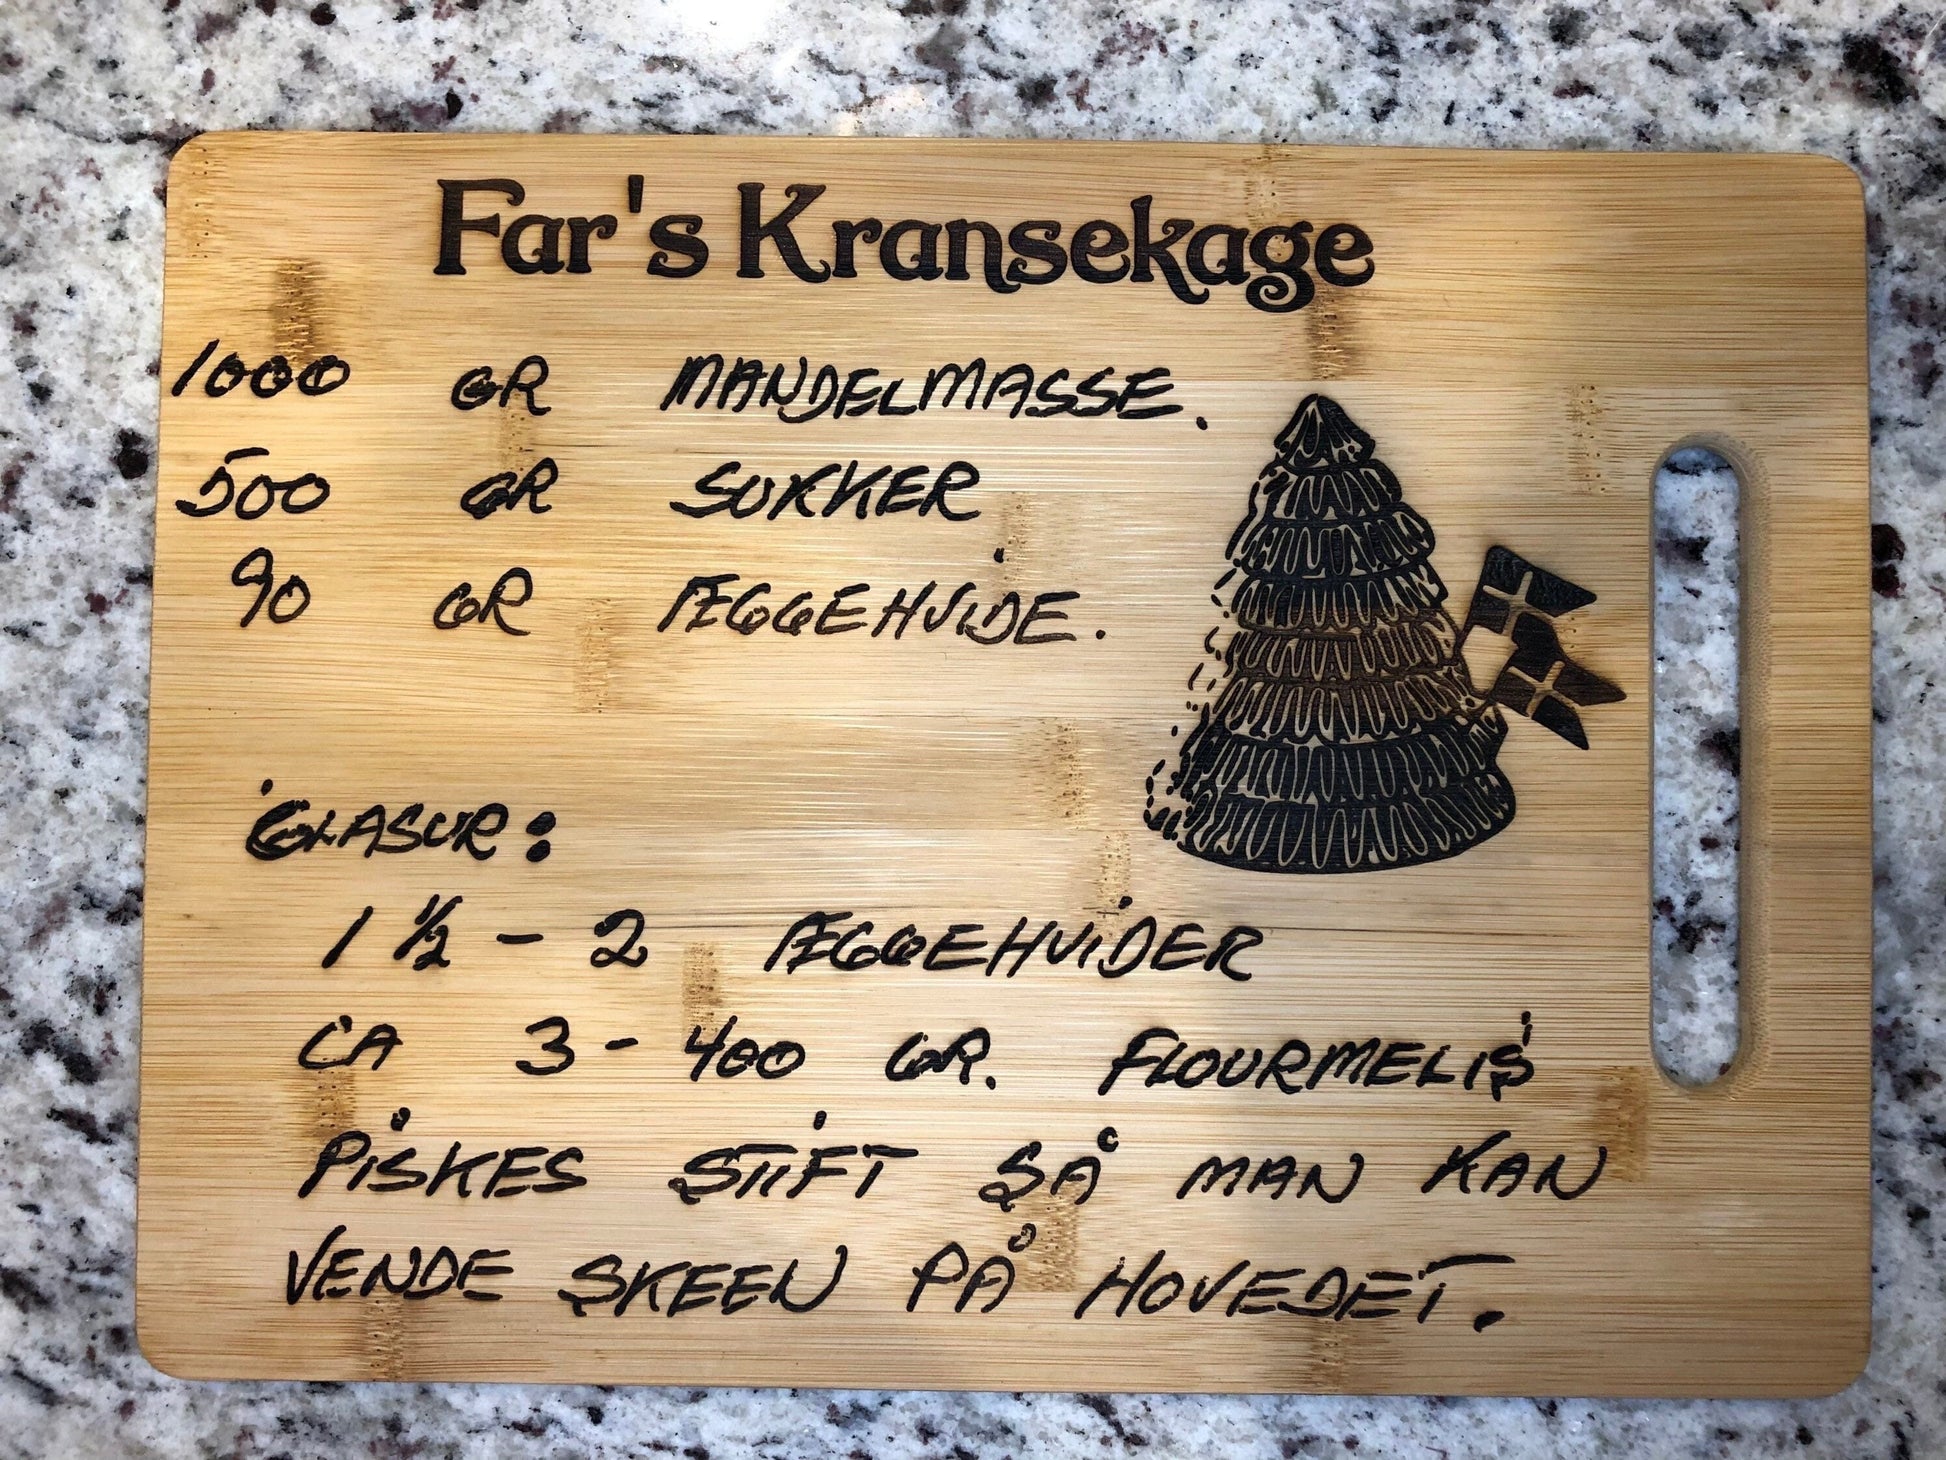 Far's Kransekage
1000 GR MANDELMASSE.
500 GR SUKKER
90 GR ÆGGEHVIDE.
GLASUR:
1 ½ - 2 ÆGGEHVIDER
CA 3 - 400 GR. FLOURMELIS
PISKES STIFT SÅ MAN KAN
VENDE SKEEN PÅ HOVEDET.